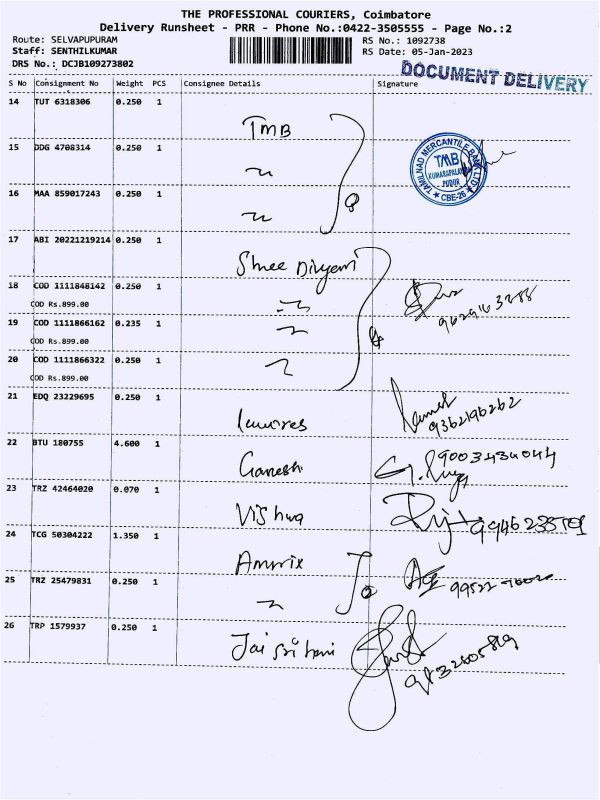 THE PROFESSIONAL COURIERS, Coimbatore
Delivery Runsheet - PRR - Phone No.:0422-3505555 - Page No.:2
Route: SELVAPUPURAM RS No.: 1092738
Staff: SENTHILKUMAR RS Date: 05-Jan-2023
DRS No.: DCJB109273802
DOCUMENT DELIVERY
S No Consignment No Weight PCS Consignee Details Signature
14 TUT 6318306 0.250 1 TMB
15 DDG 4708314 0.250 1
TAMILNAD MERCANTILE BANK LTD
TMB
PUDUR
★ CBE-26 ★
16 MAA 859017243 0.250 1
17 ABI 20221219214 0.250 1 Shree Divyam
18 COD 1111848142 0.250 1
COD Rs.899.00
19 COD 1111866162 0.235 1
COD Rs.899.00
20 COD 1111866322 0.250 1
COD Rs.899.00
21 EDQ 23229695 0.250 1
9362196262
22 BTU 180755 4.600 1 Ganesh
9003434044
23 TRZ 42464020 0.070 1 Vishwa
24 TCG 50304222 1.350 1
25 TRZ 25479831 0.250 1
26 TRP 1579937 0.250 1 Jai Sri